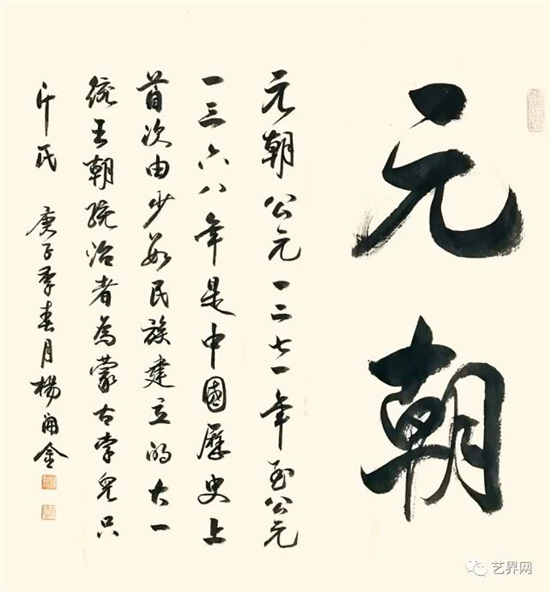 元朝
元朝公元一二七一年至公元
一三六八年是中國歷史上
首次由少数民族建立的大一
統王朝統治者為蒙古孛兒只
斤氏 庚子季春月楊金
艺界网